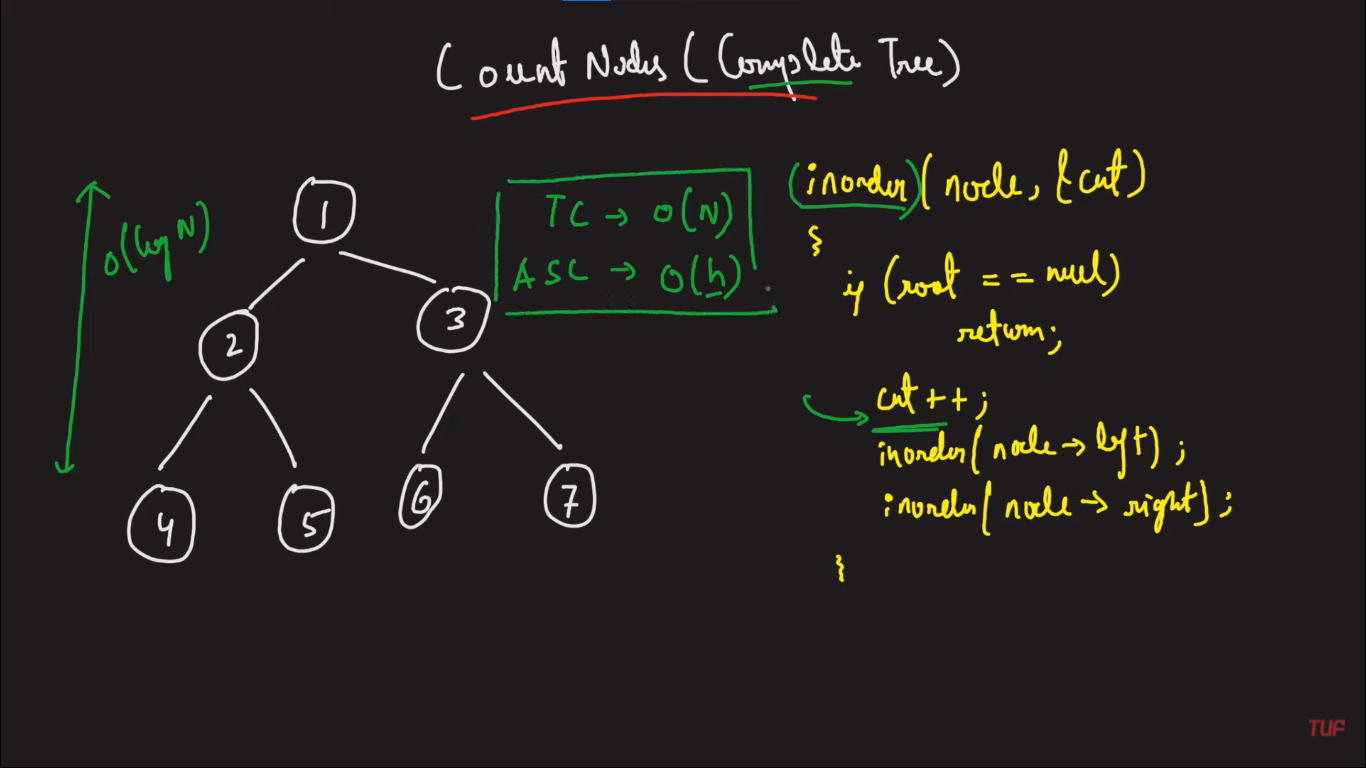 Count Nodes (Complete Tree)
O(log N)
1
2
3
4
5
6
7
TC → O(N)
ASC → O(h)
(inorder)(node, &cnt)
{
if (root == null)
return;
cnt++;
inorder(node → left);
inorder(node → right);
}
TUF